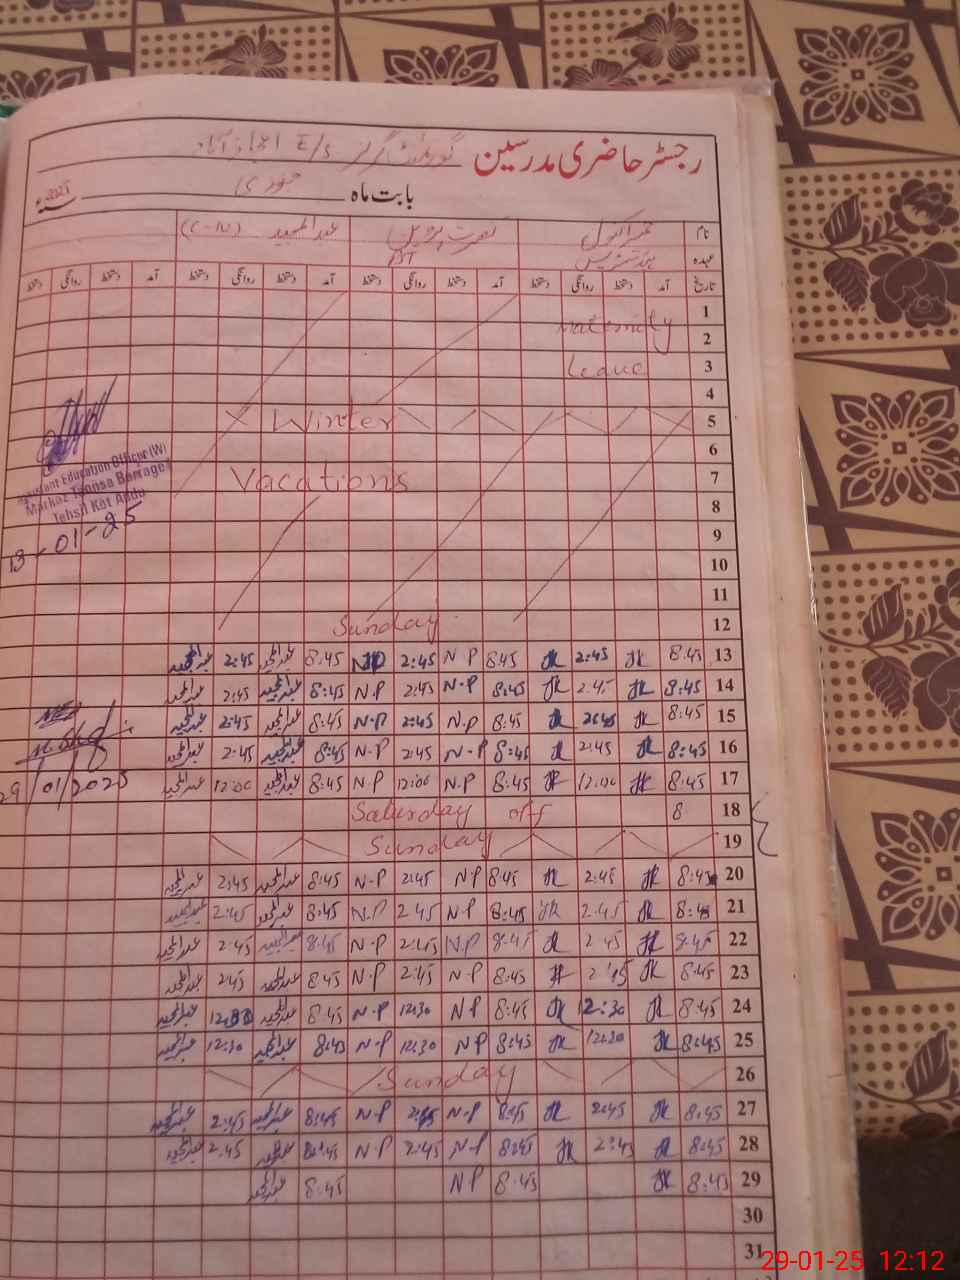 رجسٹر حاضری مدرسین گورنمنٹ گرلز E/S
بابت ماہ جنوری
نام نصرت پروین عبدالمجید (C-IV)
عہدہ ہیڈمسٹریس PST
تاریخ آمد دستخط روانگی دستخط آمد دستخط روانگی دستخط آمد دستخط روانگی دستخط آمد دستخط روانگی دستخط
1
Maternity
2
Leave 3
4
Winter 5
6
Vacations 7
8
9
10
11
Sunday 12
Assistant Education Officer (W)
Markaz Taunsa Barrage
Tehsil Kot Addu
13-01-25
عبدالمجید 2:45 عبدالمجید 8:45 N.P 2:45 N.P 8:45 JK 2:45 JK 8:45 13
عبدالمجید 2:45 عبدالمجید 8:45 N.P 2:45 N.P 8:45 JK 2:45 JK 8:45 14
عبدالمجید 2:45 عبدالمجید 8:45 N.P 2:45 N.P 8:45 JK 2:45 JK 8:45 15
عبدالمجید 2:45 عبدالمجید 8:45 N.P 2:45 N.P 8:45 JK 2:45 JK 8:45 16
عبدالمجید 12:00 عبدالمجید 8:45 N.P 12:00 N.P 8:45 JK 12:00 JK 8:45 17
29/01/2025
Saturday off 8 18
Sunday 19
عبدالمجید 2:45 عبدالمجید 8:45 N.P 2:45 N.P 8:45 JK 2:45 JK 8:45 20
عبدالمجید 2:45 عبدالمجید 8:45 N.P 2:45 N.P 8:45 JK 2:45 JK 8:45 21
عبدالمجید 2:45 عبدالمجید 8:45 N.P 2:45 N.P 8:45 JK 2:45 JK 8:45 22
عبدالمجید 2:45 عبدالمجید 8:45 N.P 2:45 N.P 8:45 JK 2:45 JK 8:45 23
عبدالمجید 12:30 عبدالمجید 8:45 N.P 12:30 N.P 8:45 JK 12:30 JK 8:45 24
عبدالمجید 12:30 عبدالمجید 8:45 N.P 12:30 N.P 8:45 JK 12:30 JK 8:45 25
Sunday 26
عبدالمجید 2:45 عبدالمجید 8:45 N.P 2:45 N.P 8:45 JK 2:45 JK 8:45 27
عبدالمجید 2:45 عبدالمجید 8:45 N.P 2:45 N.P 8:45 JK 2:45 JK 8:45 28
عبدالمجید 8:45 N.P 8:45 JK 8:45 29
30
31
29-01-25 12:12